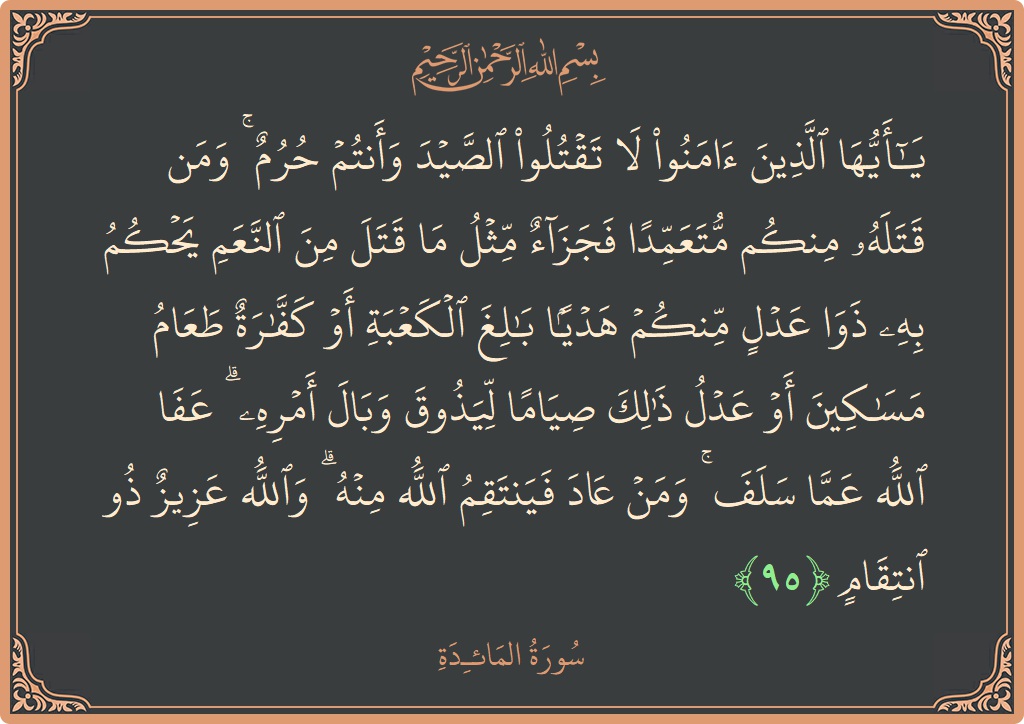 بِسْمِ اللَّهِ الرَّحْمَٰنِ الرَّحِيمِ
يَـٰٓأَيُّهَا ٱلَّذِينَ ءَامَنُوا۟ لَا تَقْتُلُوا۟ ٱلصَّيْدَ وَأَنتُمْ حُرُمٌ ۚ وَمَن
قَتَلَهُۥ مِنكُم مُّتَعَمِّدًا فَجَزَآءٌ مِّثْلُ مَا قَتَلَ مِنَ ٱلنَّعَمِ يَحْكُمُ
بِهِۦ ذَوَا عَدْلٍ مِّنكُمْ هَدْيًۢا بَـٰلِغَ ٱلْكَعْبَةِ أَوْ كَفَّـٰرَةٌ طَعَامُ
مَسَـٰكِينَ أَوْ عَدْلُ ذَٰلِكَ صِيَامًا لِّيَذُوقَ وَبَالَ أَمْرِهِۦ ۗ عَفَا
ٱللَّهُ عَمَّا سَلَفَ ۚ وَمَنْ عَادَ فَيَنتَقِمُ ٱللَّهُ مِنْهُ ۗ وَٱللَّهُ عَزِيزٌ ذُو
ٱنتِقَامٍ ﴿٩٥﴾
سُورَةُ المَائـِدَةِ